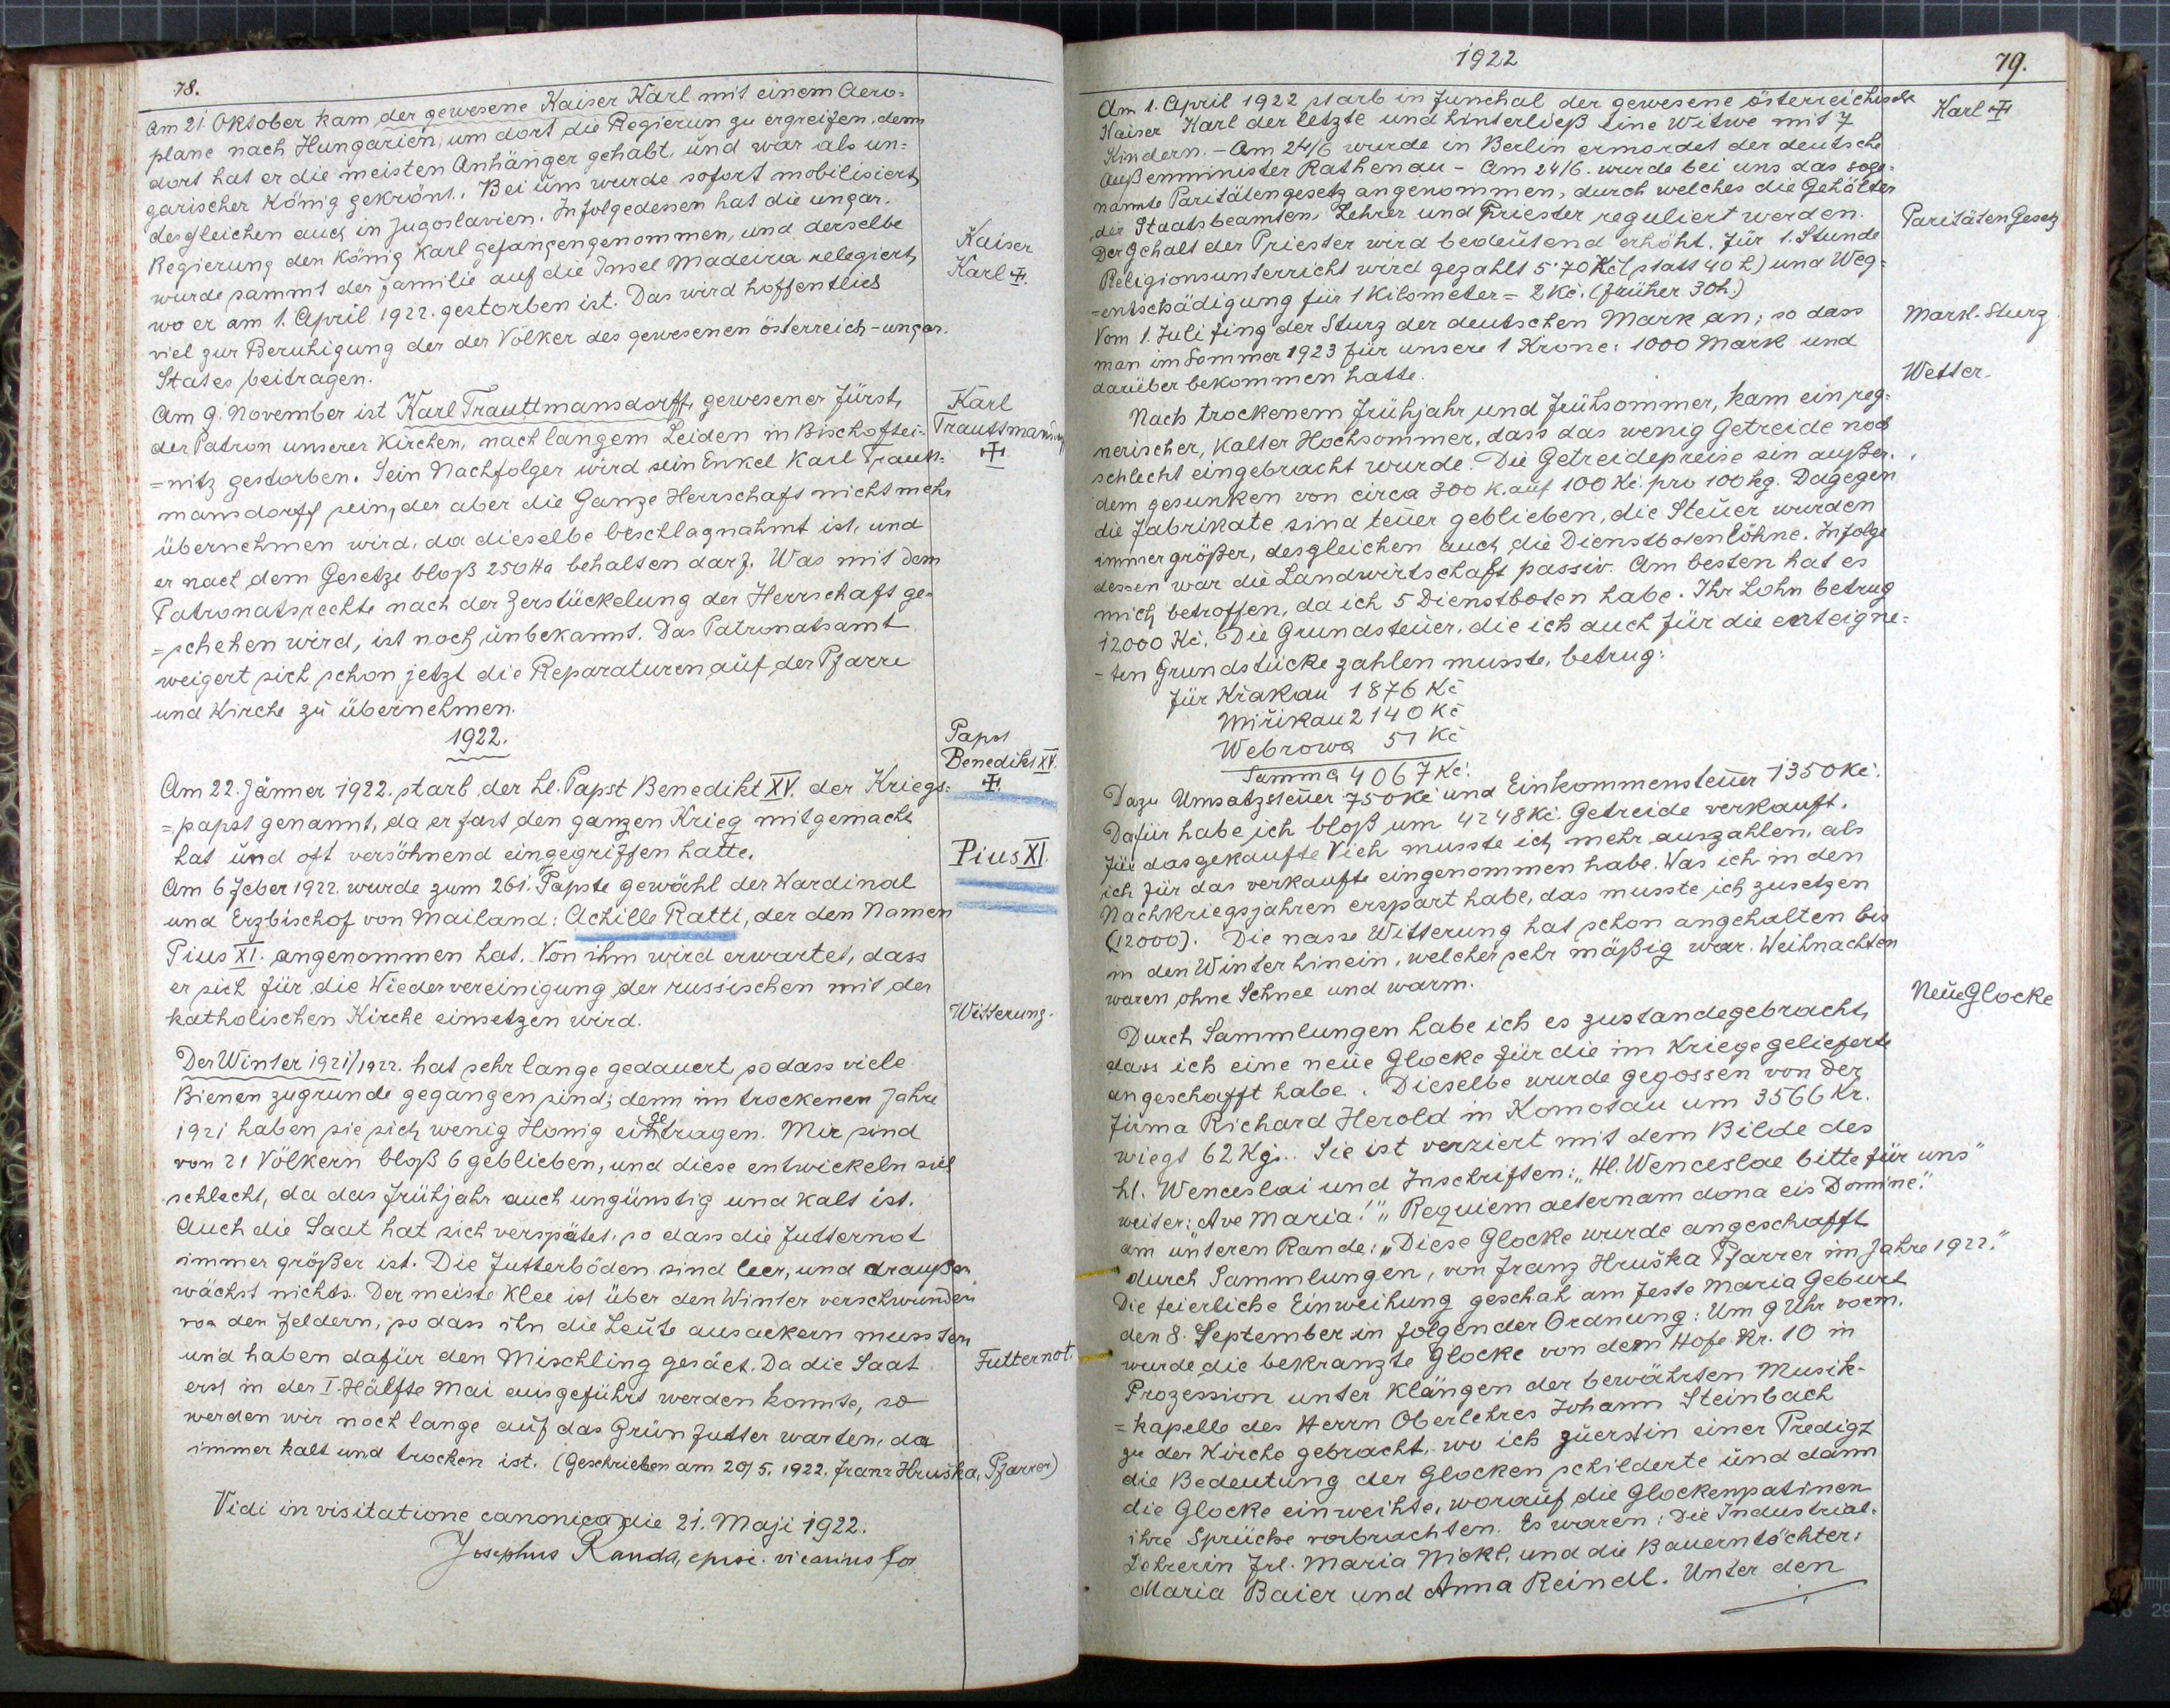 78.
Am 21. Oktober kam der gewesene Kaiser Karl mit einem Aero=
plane nach Hungarien, um dort die Regierun zu ergreifen, denn
dort hat er die meisten Anhänger gehabt, und war als un=
garischer König gekrönt. Bei uns wurde sofort mobilisiert,
desgleichen auch in Jugoslavien. Infolgedessen hat die ungar.
Regierung den König Karl gefangengenommen, und derselbe
wurde sammt der Familie auf die Insel Madeira relegiert,
wo er am 1. April 1922. gestorben ist. Das wird hoffentlich
viel zur Beruhigung der der Völker des gewesenen österreich-ungar.
States beitragen.
Kaiser
Karl ✠.
Am 9. November ist Karl Trauttmansdorff, gewesener Fürst,
der Patron unserer Kirchen, nach langem Leiden in Bischoftei=
=nitz gestorben. Sein Nachfolger wird sein Enkel Karl Trautt=
mansdorff sein, der aber die Ganze Herrschaft nicht mehr
übernehmen wird, da dieselbe beschlagnahmt ist, und
er nach dem Gesetze bloß 250 Ha behalten darf. Was mit dem
Patronatsrechte nach der Zerstückelung der Herrschaft ge=
=schehen wird, ist noch unbekannt. Das Patronatsamt
weigert sich schon jetzt die Reparaturen auf der Pfarre
und Kirche zu übernehmen.
Karl
Trauttmansdorff
✠
1922.
Am 22. Jänner 1922. starb der hl. Papst Benedikt XV. der Kriegs=
=papst genannt, da er fast den ganzen Krieg mitgemacht
hat und oft versöhnend eingegriffen hatte.
Papst
Benedikt XV.
✠
Am 6 Feber 1922. wurde zum 261. Papste gewähl der Kardinal
und Erzbischof von Mailand: Achille Ratti, der den Namen
Pius XI. angenommen hat. Von ihm wird erwartet, dass
er sich für die Wiedervereinigung der russischen mit der
katholischen Kirche einsetzen wird.
Pius XI.
Witterung.
Der Winter 1921/1922. hat sehr lange gedauert, so dass viele
Bienen zugrunde gegangen sind; denn im trockenen Jahre
1921 haben sie sich wenig Honig eingetragen. Mir sind
von 21 Völkern bloß 6 geblieben, und diese entwickeln sich
schlecht, da das Frühjahr auch ungünstig und kalt ist.
Auch die Saat hat sich verspätet, so dass die Futternot
immer größer ist. Die Futterböden sind leer, und draußen
wächst nichts. Der meiste Klee ist über den Winter verschwunden
von den Feldern, so dass ihn die Leute ausackern mussten
und haben dafür den Mischling gesäet. Da die Saat
erst in der I. Hälfte Mai ausgeführt werden konnte, so
werden wir noch lange auf das Grünfutter warten, da
immer kalt und trocken ist. (Geschrieben am 20/5. 1922. Franz Hruška, Pfarrer)
Futternot.
Vidi in visitatione canonica die 21. Maji 1922.
Josephus Randa, episc. vicarius for.
1922
79.
Am 1. April 1922 starb in Funchal der gewesene österreichische
Kaiser Karl der letzte und hinterließ eine Witwe mit 7
Kindern. - Am 24/6 wurde in Berlin ermordet der deutsche
Außenminister Rathenau - Am 24/6. wurde bei uns das soge=
nannte Paritätengesetz angenommen, durch welches die Gehälter
der Staatsbeamten, Lehrer und Priester reguliert werden.
Der Gehalt der Priester wird bedeutend erhöht. Für 1. Stunde
Religionsunterricht wird gezahlt 5·70 Kč (statt 40 h) und Weg=
=entschädigung für 1 Kilometer = 2 Kč. (früher 30h.)
Vom 1. Juli fing der Sturz der deutschen Mark an; so dass
man im Sommer 1923 für unsere 1 Krone: 1000 Mark und
darüber bekommen hatte.
Karl ✠
Paritäten Gesetz
Mark-Sturz
Wetter.
Nach trockenem Frühjahr und Frühsommer, kam ein reg=
nerischer, kalter Hochsommer, dass das wenig Getreide noch
schlecht eingebracht wurde. Die Getreidepreise sin außer=
dem gesunken von circa 300 K. auf 100 Kč. pro 100 kg. Dagegen
die Fabrikate sind teuer geblieben, die Steuer wurden
immer größer, desgleichen auch die Dienstbotenlöhne. Infolge
dessen war die Landwirtschaft passiv. Am besten hat es
mich betroffen, da ich 5 Dienstboten habe. Ihr Lohn betrug
12000 Kč. Die Grundsteuer, die ich auch für die enteigne=
-ten Grundstücke zahlen musste, betrug:
für Křakau 1876 Kč
Miřikau 2140 Kč
Webrowa 51 Kč
Samma 4067 Kč.
Dazu Umsatzsteuer 750 Kč und Einkommensteuer 1350 Kč.
Dafür habe ich bloß um 4248 Kč. Getreide verkauft.
Für das gekaufte Vieh musste ich mehr auszahlen, als
ich für das verkaufte eingenommen habe. Was ich in den
Nachkriegsjahren erspart habe, das musste ich zusetzen
(12000). Die nasse Witterung hat schon angehalten bis
in den Winter hinein, welcher sehr mäßig war. Weihnachten
waren ohne Schnee und warm.
Neue Glocke
Durch Sammlungen habe ich es zustandegebracht,
dass ich eine neue Glocke für die im Kriege gelieferte
angeschafft habe. Dieselbe wurde gegossen von der
Firma Richard Herold in Komotau um 3566 Kr.
wiegt 62 Kg. Sie ist verziert mit dem Bilde des
hl. Wenceslai und Inschriften: „Hl. Wenceslae bitte für uns"
weiter: Ave Maria!" „Requiem aeternam dona eis Domine."
am unteren Rande: „Diese Glocke wurde angeschafft
durch Sammlungen, von Franz Hruška Pfarrer im Jahre 1922."
Die feierliche Einweihung geschah am Feste Maria Geburt
den 8. September in folgender Ordnung: Um 9 Uhr vorm.
wurde die bekranzte Glocke von dem Hofe Nr. 10 in
Prozession unter Klängen der bewährten Musik-
=kapelle des Herrn Oberlehres Johann Steinbach
zu der Kirche gebracht, wo ich zuerst in einer Predigt
die Bedeutung der Glocken schilderte und dann
die Glocke einweihte, worauf die Glockenpatinen
ihre Sprüche vorbrachten. Es waren: Die Industrial-
Lehrerin Frl. Maria Nickl, und die Bauerntöchter:
Maria Baier und Anna Reindl. Unter den